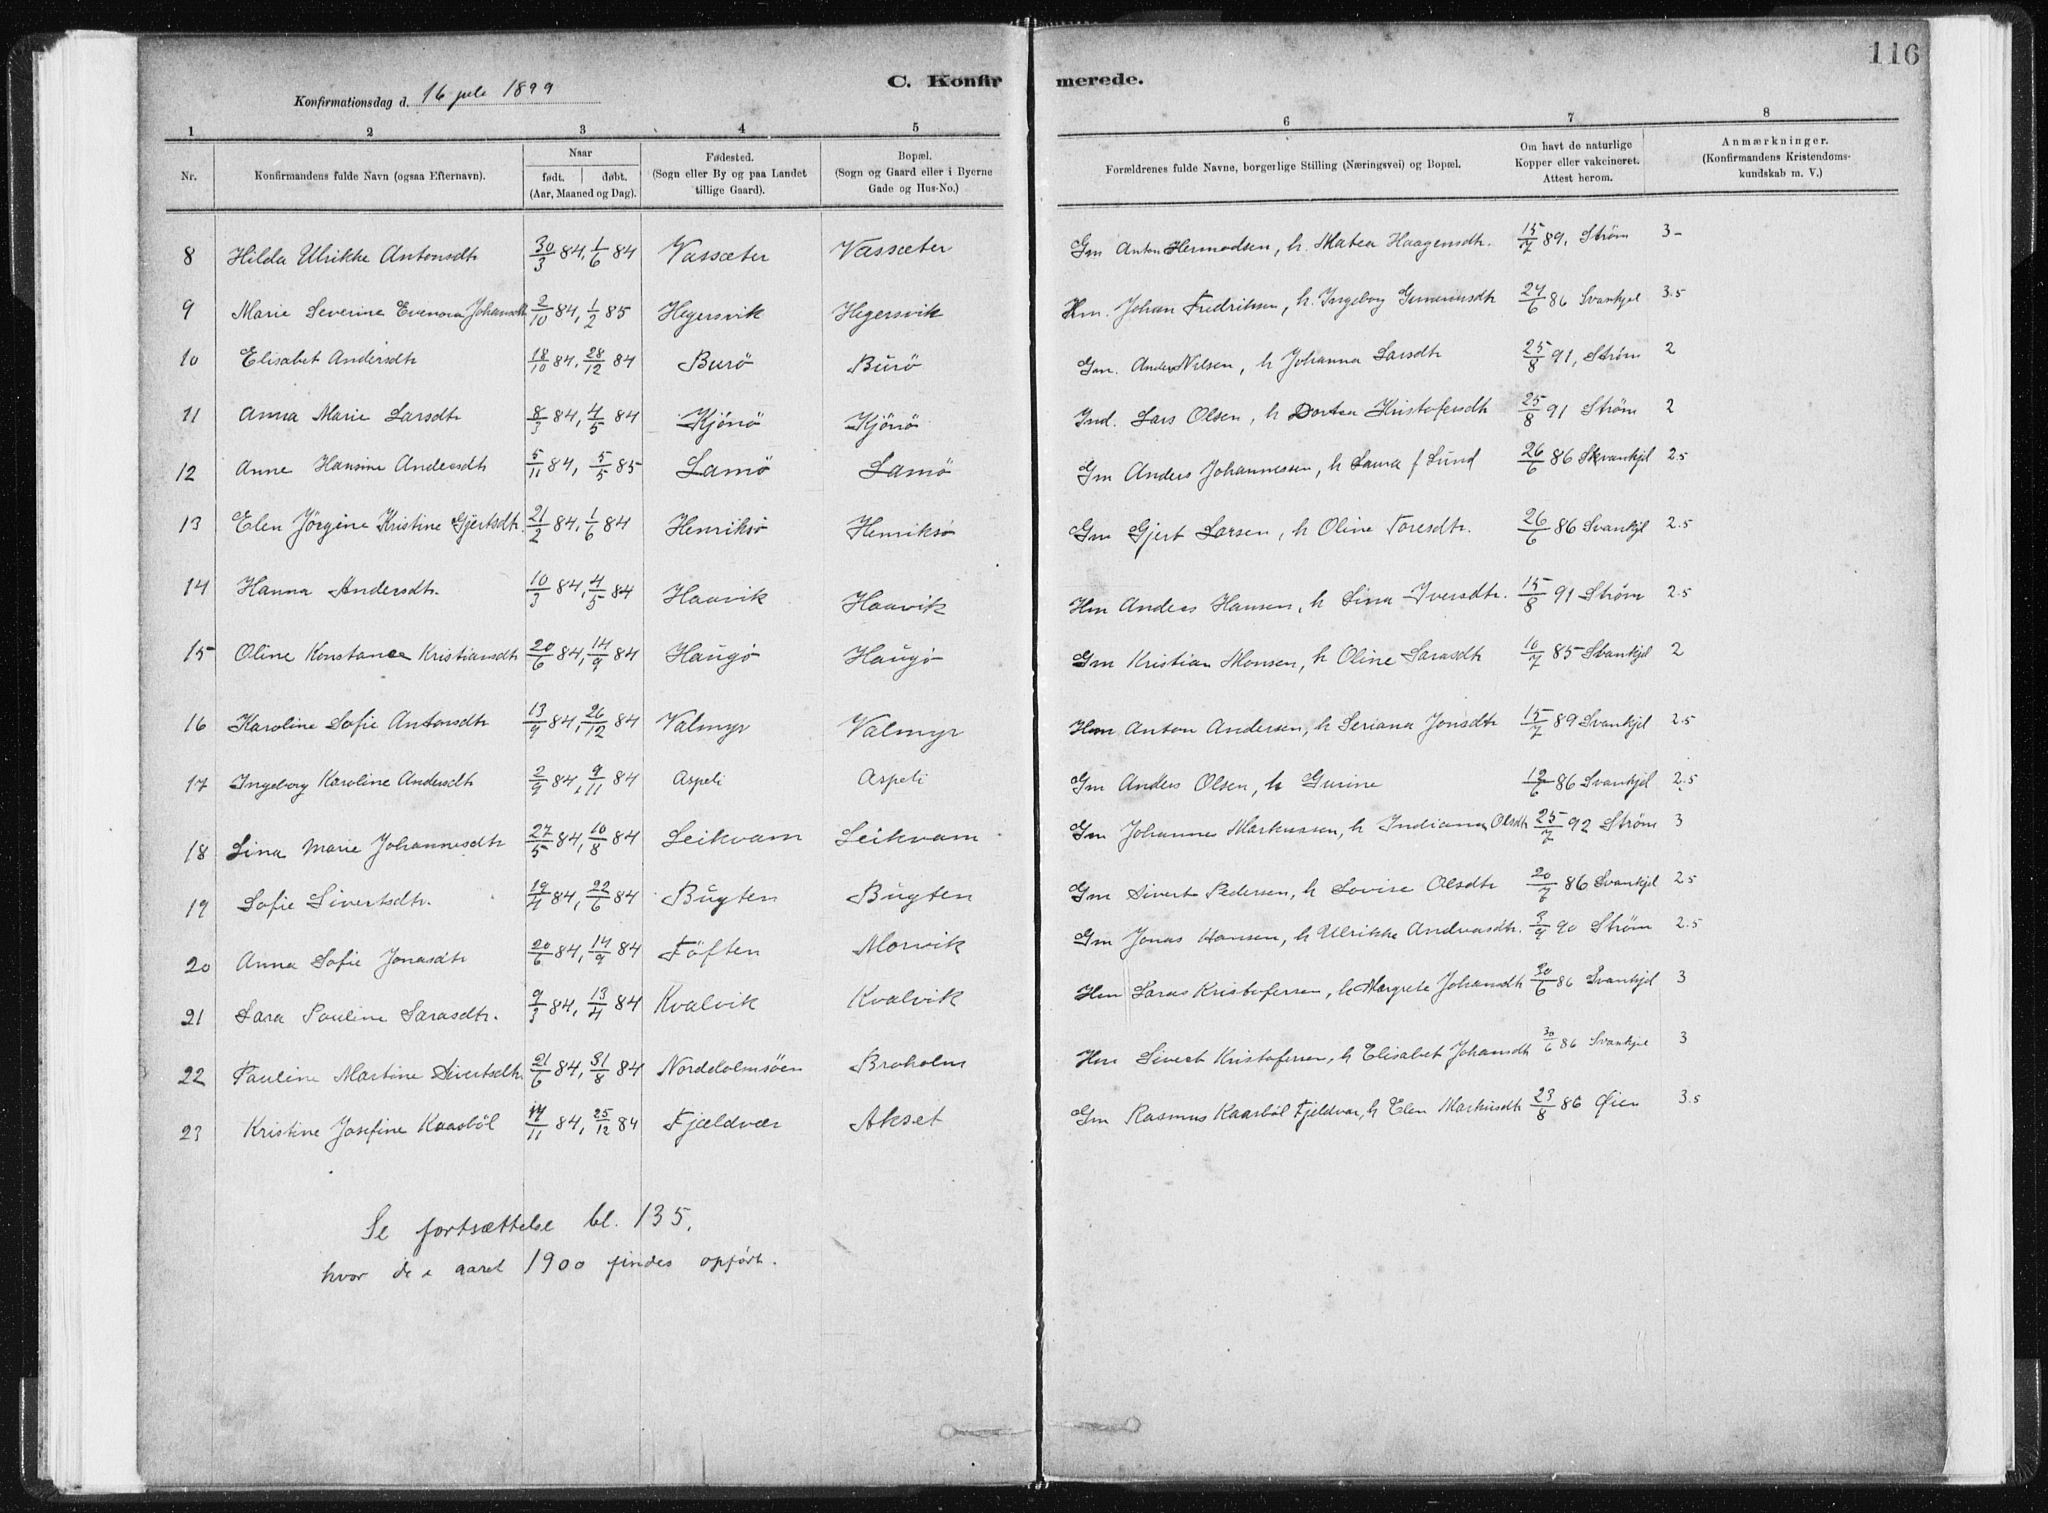 116
C. Konfirmerede.
Konfirmationsdag d. 16 juli 1899
1 2 3 4 5 6 7 8
Nr. Konfirmandens fulde Navn (ogsaa Efternavn). Naar født. døbt. (Aar, Maaned og Dag). Fødested. (Sogn eller By og paa Landet tillige Gaard). Bopæl. (Sogn og Gaard eller i Byerne Gade og Hus-No.) Forældrenes fulde Navne, borgerlige Stilling (Næringsvei) og Bopæl. Om havt de naturlige Kopper eller vakcineret. Attest herom. Anmærkninger. (Konfirmandens Kristendomskundskab m. V.)
8 Hilda Ulrikke Antonsdtr 30/3 84, 1/6 84 Vassæter Vassæter Gm Anton Hermodsen, h. Matea Haagensdtr. 15/7 89, Strøm 3-
9 Marie Severine Evenora Johansdtr 2/10 84, 1/2 85 Hegersvik Hegersvik Hm. Johan Fredriksen, h. Ingeborg Gunnersdtr 24/6 86 Svankjel 3.5
10 Elisabet Andersdtr 18/10 84, 28/12 84 Burö Burö Gm. Anders Nilsen, h Johanna Larsdtr 25/8 91, Strøm 2
11 Anna Marie Larsdtr 8/3 84, 4/5 84 Kjönö Kjönö Ind. Lars Olsen, h Dortea Kristofersdtr 25/8 91 Strøm 2
12 Anne Hansine Andersdtr 5/11 84, 5/5 85 Lamö Lamö Gm Anders Johannessen, h Laura f Lund 26/6 86 Svankjel 2.5
13 Elen Jörgine Kristine Gjertsdtr. 21/2 84, 1/6 84 Henriksö Henriksö Gm Gjert Larsen, h Oline Toresdtr. 26/6 86 Svankjl 2.5
14 Hanna Andersdtr. 10/3 84, 4/5 84 Haavik Haavik Hm Anders Hansen, h Lina Iversdtr. 15/8 91 Strøm 2.5
15 Oline Konstance Kristiansdtr 20/6 84, 14/9 84 Haugö Haugö Gm Kristian Monsen, h Oline Larasdtr 10/7 85 Svankjl 2
16 Karoline Sofie Antonsdtr 13/9 84, 26/12 84 Valmyr Valmyr Hm Anton Andersen, h Seriana Jonsdtr 15/7 89 Svankjel 2.5
17 Ingeborg Karoline Andersdtr 2/9 84, 9/11 84 Aspeli Aspeli Gm Anders Olsen, h Gurine 12/6 86 Svankjel 2.5
18 Lina Marie Johannesdtr 27/5 84, 10/8 84 Leikvam Leikvam Gm Johannes Markussen, h Indiana Olsdtr 25/7 92 Strøm 3
19 Sofie Sivertsdtr. 19/4 84, 22/6 84 Bugten Bugten Gm Sivert Pedersen, h Lovise Olsdtr 20/7 86 Svankjel 2.5
20 Anna Sofie Jonasdtr 20/6 84, 14/9 84 Töften Morvik Gm Jonas Hansen, h Ulrikke Andreasdtr. 3/9 90 Strøm 2.5
21 Lara Pauline Larasdtr. 9/3 84, 13/4 84 Kvalvik Kvalvik Hm Laras Kristofersen, h Margrete Johansdtr 30/6 86 Svankjel 3
22 Pauline Martine Sivertsdtr. 21/6 84, 31/8 84 Nordholmsöen Broholm Hm Sivert Kristofersen, h Elisabet Johansdtr 30/6 86 Svankjel 3
23 Kristine Josefine Kaarböl 14/11 84, 25/12 84 Fjældvær Akset Gm Rasmus Kaarböl Fjeldvær, h Elen Markusdtr 23/8 86 Øien 3.5
Se fortsættelse bl. 135.
hvor de i aaret 1900 findes opført.